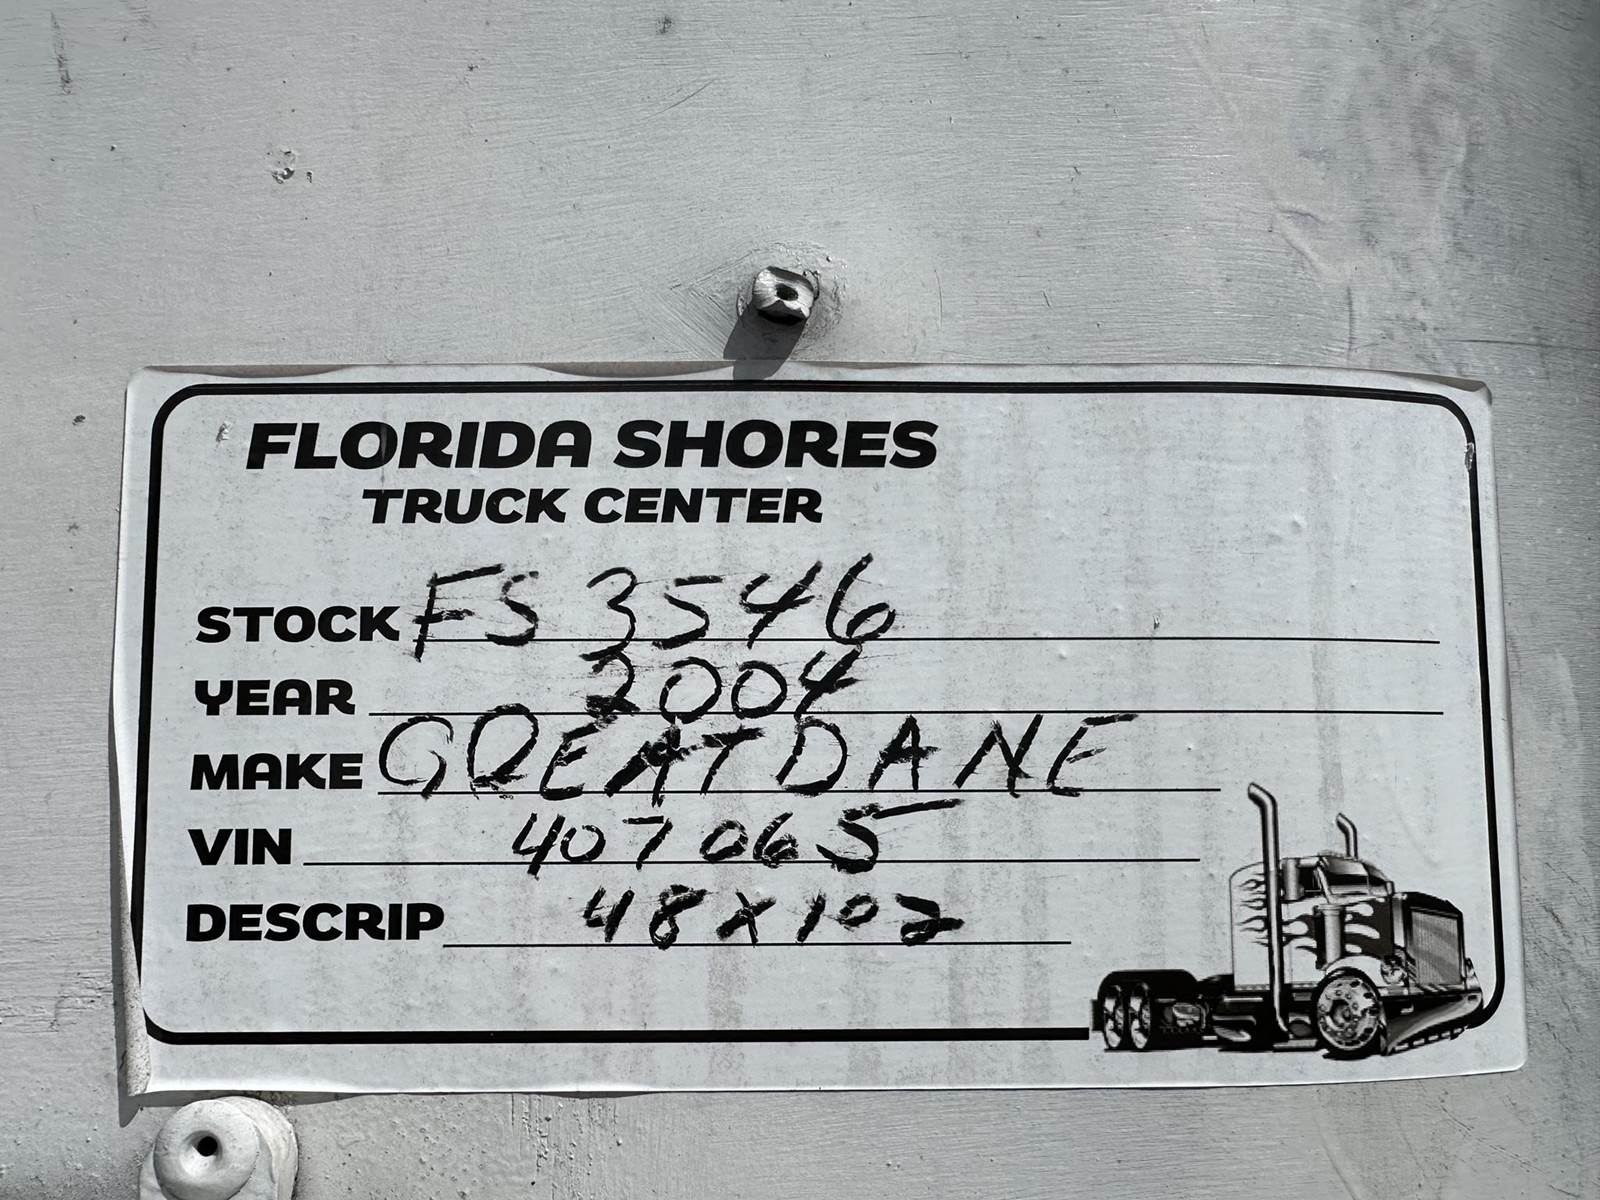 FLORIDA SHORES
TRUCK CENTER
STOCK FS 3546
YEAR 2004
MAKE GREAT DANE
VIN 407065
DESCRIP 48 x 102